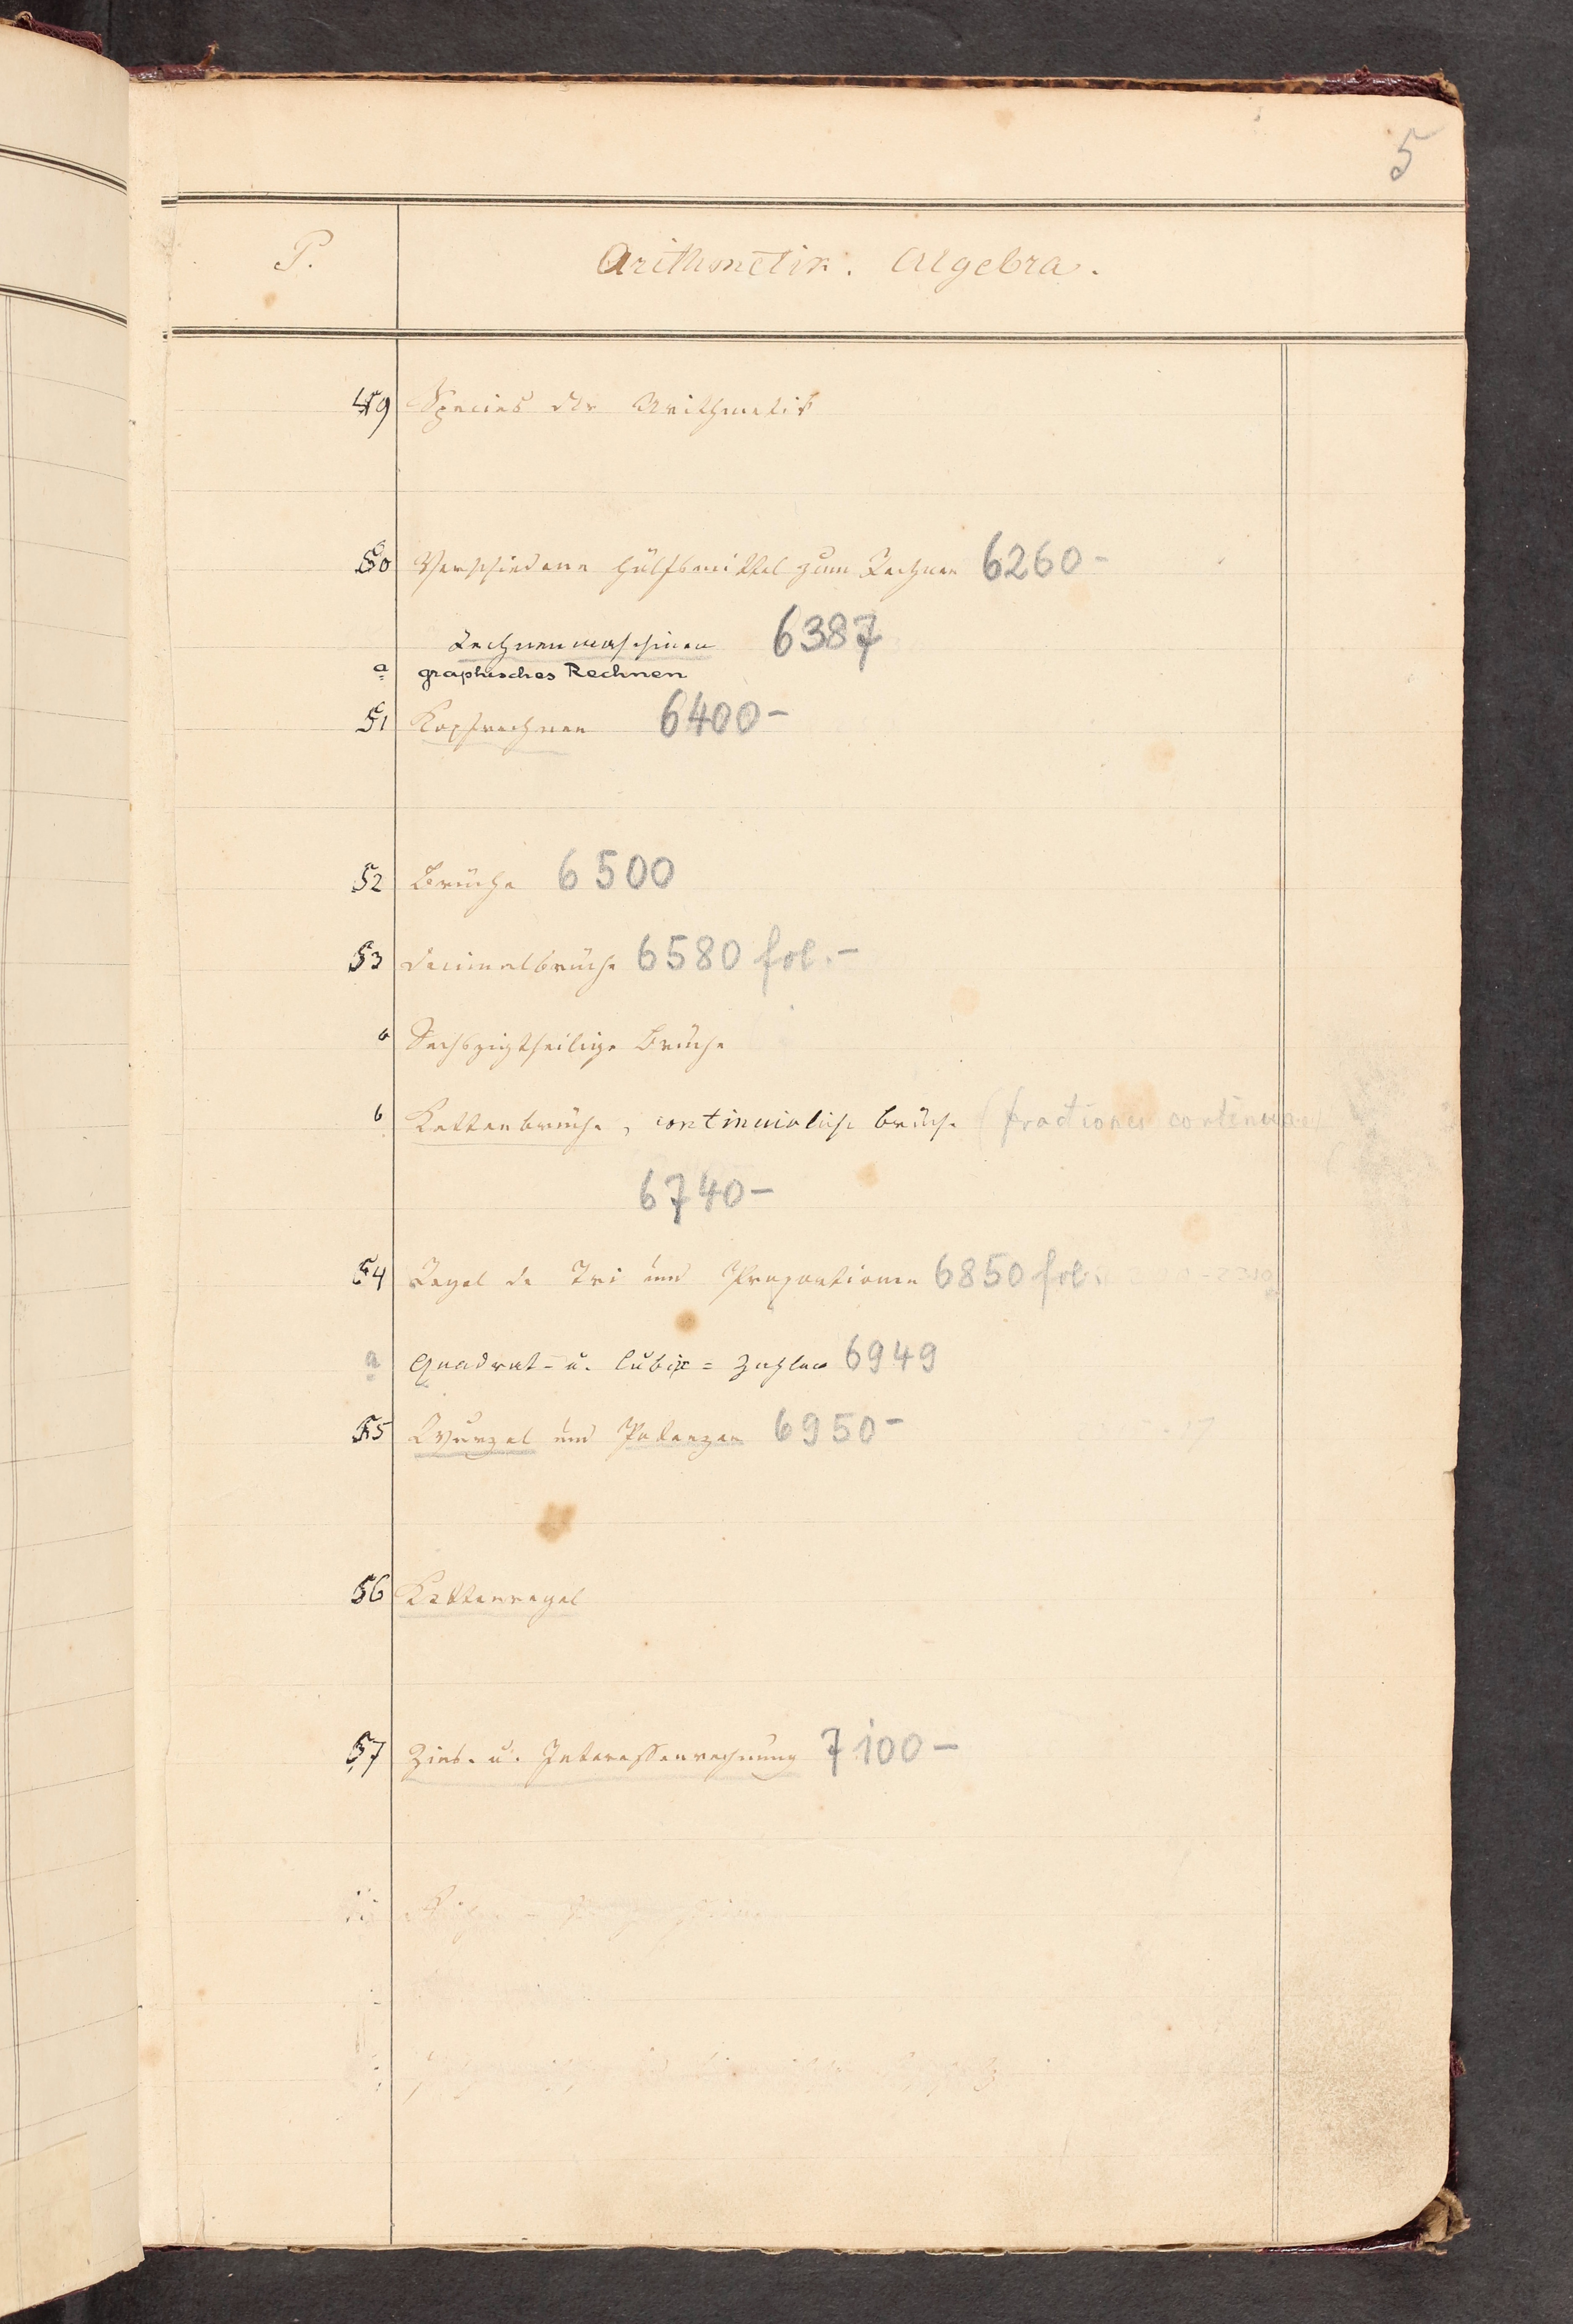 5
P. Arithmetik. Algebra.
49 Species der Arithmetik
50 Verschiedene Hülfsmittel zum Rechnen 6260-
Rechnenmaschinen 6387
a graphisches Rechnen
51 Kopfrechnen 6400-
52 Brüche 6500
53 Decimalbrüche 6580 fol.-
a Sechszigtheilige Brüche
b Kettenbrüche, continuirliche Brüche (fractiones continuae)
6740-
54 Regel de Tri und Proportionen 6850 fol.
a Quadrat- u. Cubik= Zahlen 6949
55 Wurzel und Potenzen 6950-
56 Kettenregel
57 Zins- u. Interessenrechnung 7100-